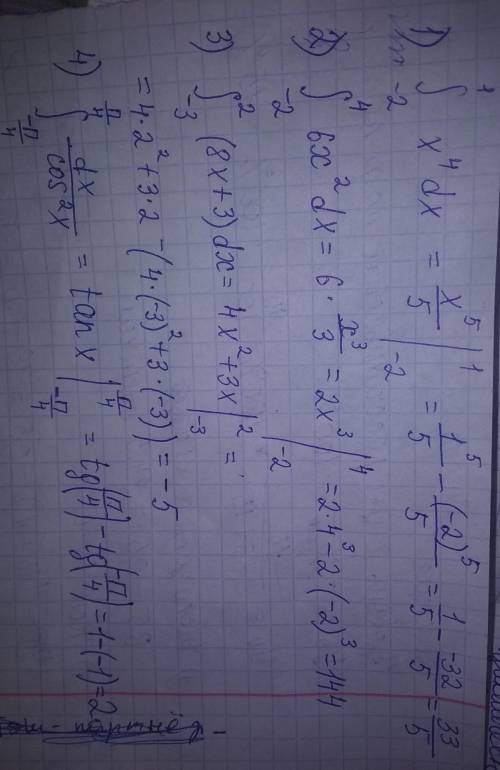 1) ∫_{-2}^{1} x^4 dx = x^5/5 |_{-2}^{1} = 1^5/5 - (-2)^5/5 = 1/5 - -32/5 = 33/5
2) ∫_{-2}^{4} 6x^2 dx = 6 · x^3/3 = 2x^3 |_{-2}^{4} = 2·4^3 - 2·(-2)^3 = 144
3) ∫_{-3}^{2} (8x+3)dx = 4x^2+3x |_{-3}^{2} =
= 4·2^2 + 3·2 - (4·(-3)^2 + 3·(-3)) = -5
4) ∫_{-π/4}^{π/4} dx/cos^2x = tan x |_{-π/4}^{π/4} = tg(π/4) - tg(-π/4) = 1-(-1) = 2